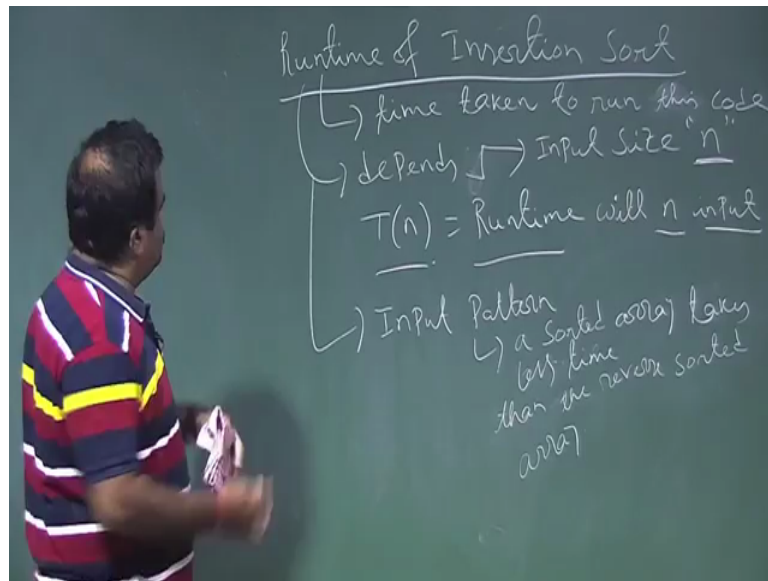 Runtime of Insertion Sort
time taken to run this code
depends Input Size "n"
T(n) = Runtime will n input
Input Pattern
a sorted array takes
less time
than the reverse sorted
array